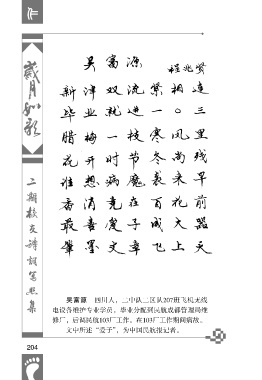 岁月如歌
二期校友诗词写照集
吴富源 程兆繁
新津双流紧相连
毕业就进一〇三
腊梅一枝寒风里
花开时节冬尚残
谁想病魔袭来早
香消竟在百花前
最喜爱子成大器
笔墨文章飞上天
吴富源 四川人，二中队二区队207班飞机无线
电设备维护专业学员，毕业分配到民航成都管理局维
修厂，后调民航103厂工作。在103厂工作期间病故。
文中所述“爱子”，为中国民航报记者。
204